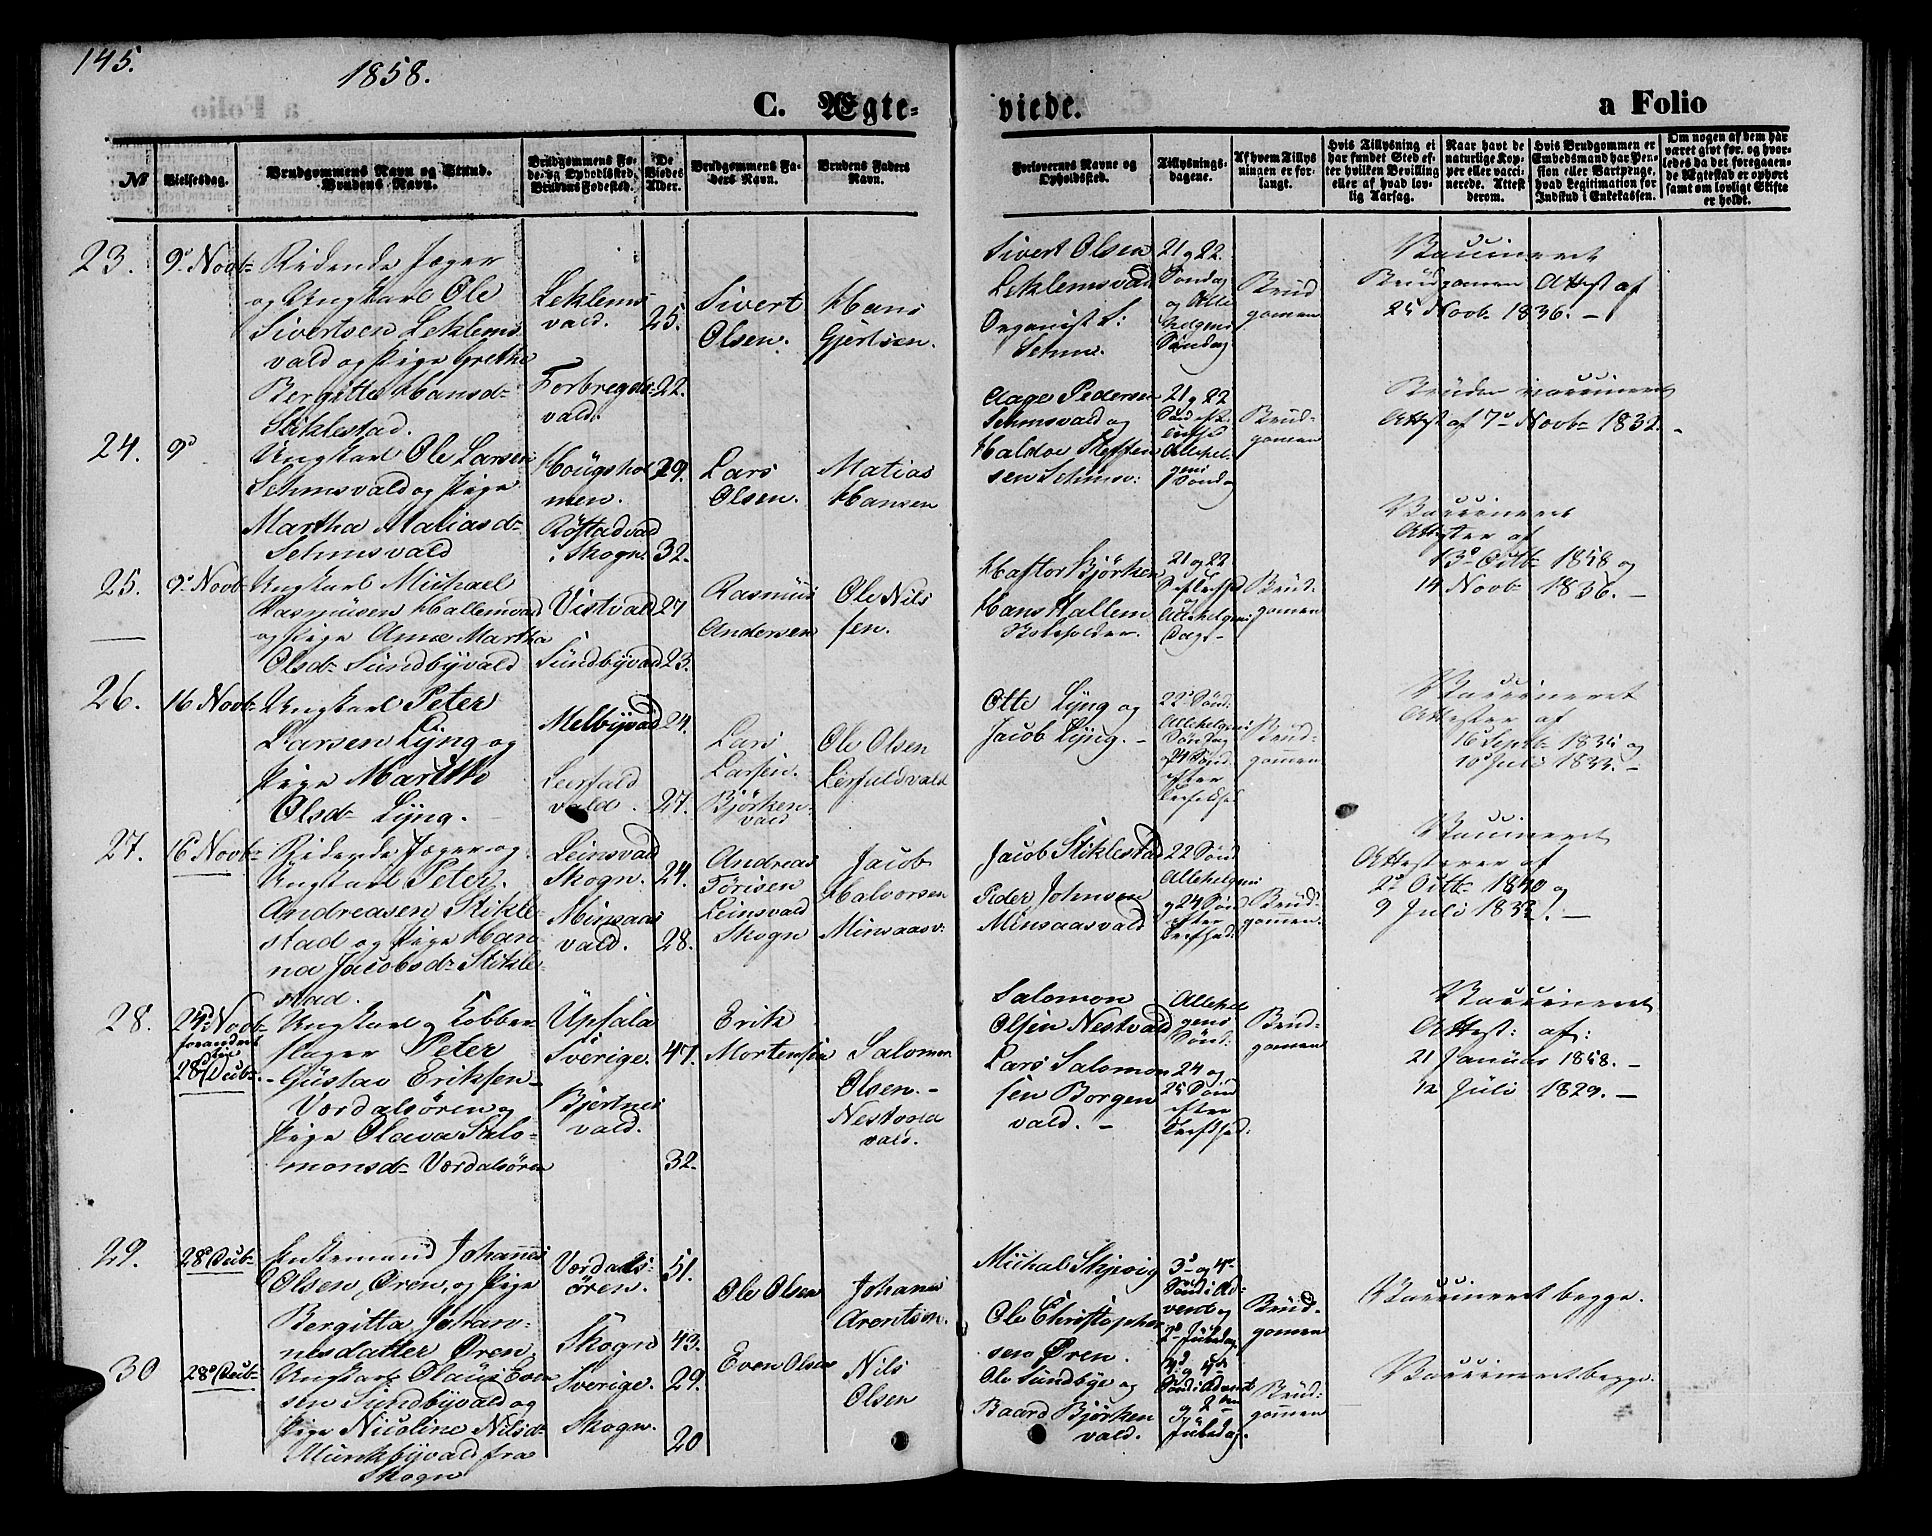 145.
1858.
C. Ægte=
viede.
a Folio
№
Vielsesdag.
Brudgommens Navn og Stand.
Brudens Navn.
Brudgommens Fø-
de- og Opholdssted.
Brudens Fødested.
De
Viedes
Alder.
Brudgommens Fa-
ders Navn.
Brudens Faders
Navn.
Forlovernes Navne og
Opholdssted.
Tillysnings-
dagene.
Af hvem Tillys
ningen er for-
langt.
Hvis Tillysning ei
har fundet Sted ef-
ter hvilken Bevilling
eller af hvad lov-
lig Aarsag.
Naar havt de
naturlige Kop-
per eller vacci-
nerede. Attest
derom.
Hvis Brudgommen er
Embedsmand har Pen-
sion eller Vartpenge,
hvad Legitimation for
Indskud i Enkekassen.
Om nogen af dem har
været givt før, og hvor-
ledes da det foregaaen-
de Ægteskab er ophørt
samt om lovligt Skifte
er holdt.
23.
9d Novb
Ridende Jæger
og Ungkarl Ole
Sivertsen Leklems
vald og Pige Grethe
Bergitte Hansd
Stiklestad.
Leklems
vald.
Forbregds
vald.
25.
22.
Sivert
Olsen.
Hans
Gjertsen.
Sivert Olsen
Leklemsvald
Organist S:
Sehm.
21 og 22
Søndag
og Alle
helgens
Søndag
Brud
gomen
Vaccineret
Brudgomen Attest af
25 Novb 1836. –
Bruden vaccineret
Attest af 17d Novb 1832. –
24.
9d
Ungkarl Ole Larsen
Sehmsvald og Pige
Martha Matiasd
Sehmsvald
Hougshol
men.
Røstadvad
i Skogn
29.
32.
Lars
Olsen.
Matias
Hansen
Aage Pedersen
Sehmsvald og
Haldoe Steffen
sen Sehmsv:
21 og 22
Allehel
gens
Søndag
Brud-
gomen
Vaccineret
Attester af
13d Octb 1858 og
14 Novb 1836. –
25.
9d Novb
Ungkarl Michael
Rasmusen Hallemvald
og Pige Ane Martha
Olsd Sundbyvald
Vistvald
Sundbyvad
27
23.
Rasmus
Andersen
Ole Nils
sen.
Haftor Bjørken
Hans Hallem
21 og 22
Allehelgens
Dag
Brud-
gomen
26.
16 Novb
Ungkarl Peter
Larsen Lyng og
Pige Marithe
Olsd Lyng.
Melbyvad
Leirfald
vald.
24.
27.
Lars
Larsen.
Bjørken
vald
Ole Olsen
Leirfuldvald
Otte Lyng og
Jacob Lyng. –
22d Sønd:
Allehelgens
Søndag
24 Sønd
efter
Brud-
gomen
Vaccineret
Attester af
16 Septb 1835 og
10d Juli 1833. –
27.
16d Novb
Ridende Jæger og
Ungkarl Peter
Andreasen Stikle-
stad og Pige Han-
na Jacobsd Stikle-
stad.
Leinsvad
Skogn.
Minsaas
vald.
24.
28.
Andreas
Tørisen
Leinsvald
Skogn
Jacob
Halvorsen
Minsaasv:
Jacob Stiklestad
Peder Johnsen
Minsaasvald
22 Sønd
Allehelgens
og 24 Sønd
efter
Brud-
gomen.
Vaccineret
Attesterer af
2d Octb 1840 og
9 Juli 1833. –
28.
24d Novb
forandret
til
28d Decb
Ungkarl og Kobber-
slager Peter
Gustav Eriksen
Værdalsøren og
Pige Olava Salo-
monsd Værdalsøren
Upsala
Sverige.
Bjertnes
vald.
47.
32.
Erik
Mortensen
Salomon
Olsen. –
Nestvold
vald.
Salomon
Olsen Nestvald
Lars Salomon
sen Borgen
vald. –
Allehel
gens
Sønd:
24 og
25 Sønd
efter
Brud-
gomen
Vaccineret
Attest: af:
21 Januar 1858. –
12 Juli 1829. –
29.
28d Decb
Enkemand Johannes
Olsen Øren, og Pige
Bergitta Johan-
nesdatter Øren
Værdals-
øren.
Skogn
51.
43.
Ole Olsen
Johanes
Arentsen.
Michal Skjevig
Ole Christopher
sen Øren.
3d og 4de
Sønd i Ad-
vent og
2d Juledag
Brud-
gomen
Vaccineret begge.
30
28d Decb
Ungkarl Olaus Even
sen Sundbyvald og
Pige Nicoline Nilsd
Munkbyvald fra
Skogn
Sverige.
Skogn.
29.
20
Even Olsen
Nils
Olsen
Ole Sundbye og
Baard Bjørken
vald.
Sønd i Advent
og 2den
Juledag.
Brud-
gomen
Vaccineret begge.